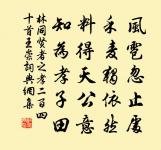 風雹忽止處
禾麥獨依然
料得天公意
知為孝子田
林同賢者之孝二百四
十首王崇詞典網集